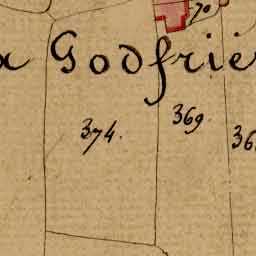 70
Godfrie
374.
369.